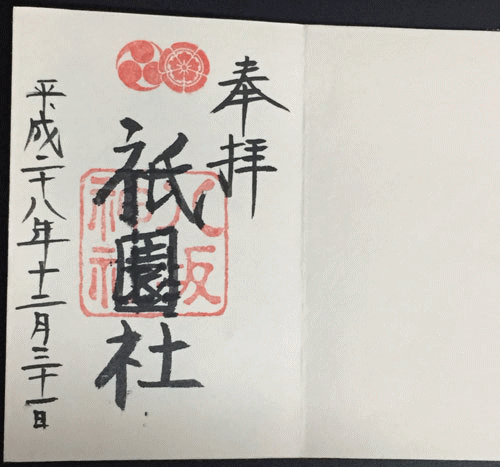 奉拝
祇園社
八坂
神社
平成二十八年十二月三十一日